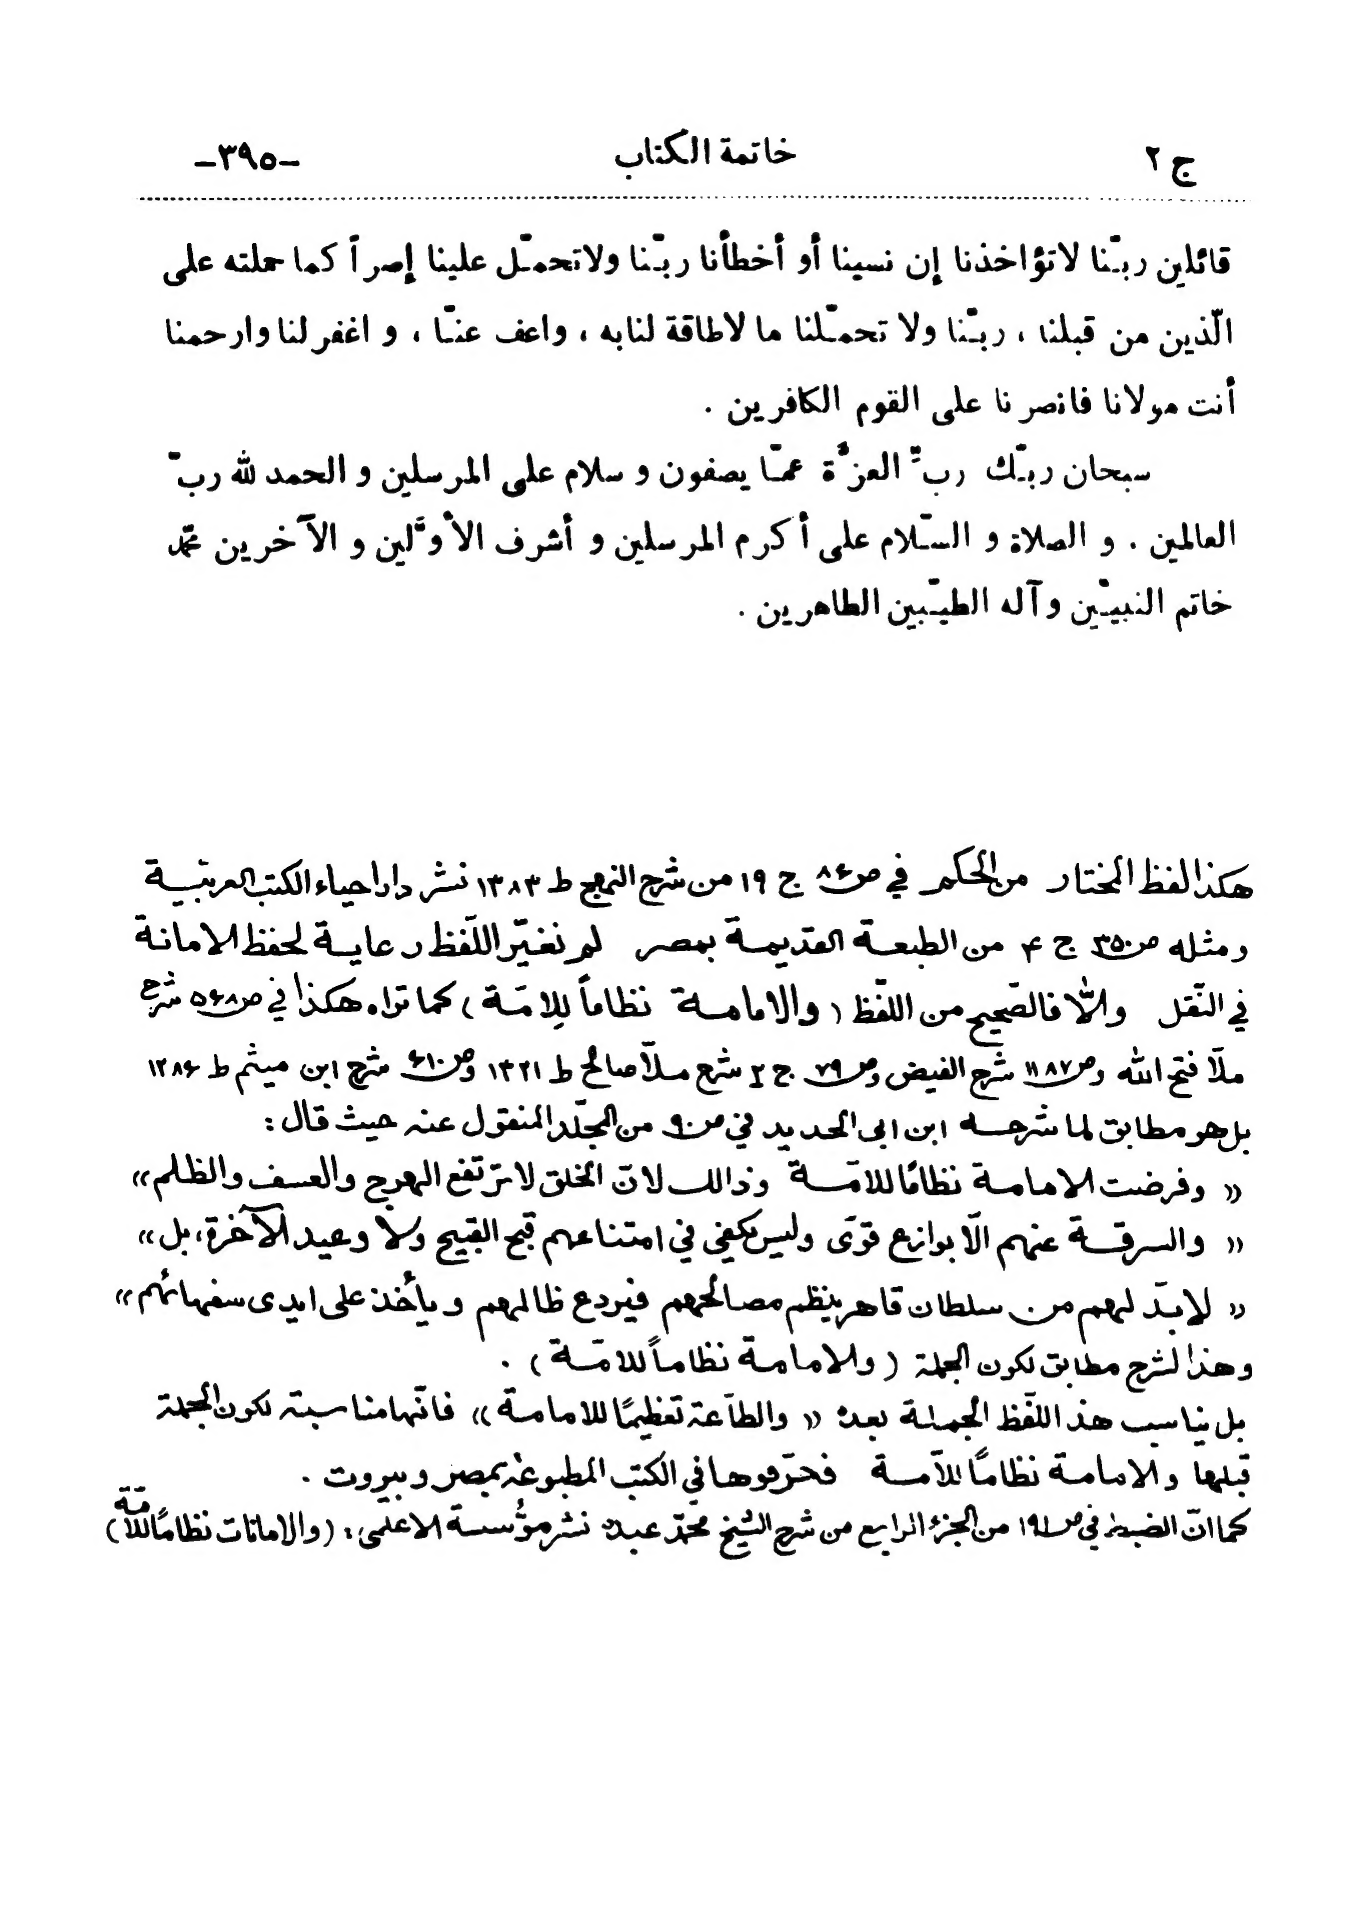 ج ٢ خاتمة الكتاب -٣٩٥-
قائلين ربّنا لاتؤاخذنا إن نسينا أو أخطأنا ربّنا ولاتحمّل علينا إصراً كما حملته على
الّذين من قبلنا ، ربّنا ولا تحمّلنا ما لاطاقة لنابه ، واعف عنّا ، و اغفر لنا وارحمنا
أنت مولانا فانصرنا على القوم الكافرين .
سبحان ربّك ربِّ العزَّة عمّا يصفون و سلام على المرسلين و الحمد لله ربّ
العالمين . و الصلاة و السّلام على أكرم المرسلين و أشرف الأوَّلين و الآخرين محمّد
خاتم النبيّين و آله الطيّبين الطاهرين .
هكذا لفظ المختار من الحكم في ص ٨۶ ج ١٩ من شرح النهج ط ١٣٨٣ نشر دار احياء الكتب العربيّة
و مثله ص ٣٥٠ ج ۴ من الطبعة القديمة بمصر لم نغيّر اللّفظ رعاية لحفظ الامانة
في النّقل والّا فالصّحيح من اللّفظ ( والامامة نظاماً للامّة ) كما تراه هكذا في ص ٥۶٨ شرح
ملّا فتح الله وص ١١٨٧ شرح الفيض وص ٧٩ ج ٢ شرح ملّا صالح ط ١٣٢١ وص ۶١٠ شرح ابن ميثم ط ١٢٨۶
بل هو مطابق لما شرحه ابن ابى الحديد في ص ٩٠ من المجلّد المنقول عنه حيث قال :
« وفرضت الامامة نظامًا للامّة وذالك لانّ الخلق لا يرتفع الهرج والعسف والظلم »
« والسرقة عنهم الّا بوازع قوّى وليس يكفي في امتناعهم قبح القبيح ولا وعيد الآخرة ، بل »
« لابدّ لهم من سلطان قاهر ينظم مصالحهم فيردع ظالمهم و يأخذ على ايدى سفهائهم »
وهذا لشرح مطابق لكون الجملة ( والامامة نظاماً للامّة ) .
بل يناسب هذ اللفظ الجملة بعده « والطّاعة تعظيمًا للامامة » فانّها مناسبة لكون الجملة
قبلها والامامة نظامًا للأمة فحرّفوها في الكتب المطبوعة بمصر و بيروت .
كما انّ الضبط في ص ١٩١ من الجزء الرابع من شرح الشيخ محمّد عبده نشر مؤسسة الاعلمى : ( والامانات نظامًا للامّة )